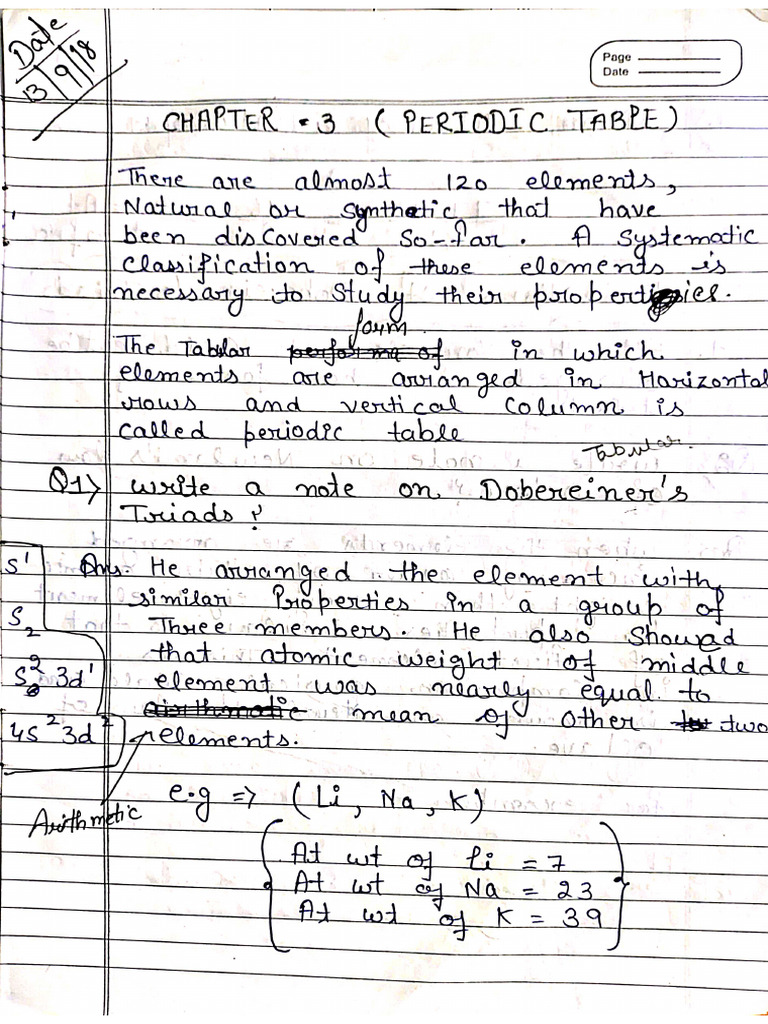 Date
13/9/18
Page
Date
CHAPTER - 3 ( PERIODIC TABLE )
There are almost 120 elements,
Natural or synthetic, that have
been discovered so-far. A systematic
classification of these elements is
necessary to study their properties.
form
The Tabular performa of in which
elements are arranged in Harizontal
rows and vertical column is
called periodic table
Tabular.
Q1> write a note on Dobereiner's
Triads ?
Ans. He arranged the element with
similar Properties in a group of
Three members. He also showed
that atomic weight of middle
element was nearly equal to
mean of other two
elements.
S¹
S₂
S² 3d¹
4s² 3d²
Arithmetic
e.g => (Li, Na, K)
At wt of Li = 7
At wt of Na = 23
At wt of K = 39